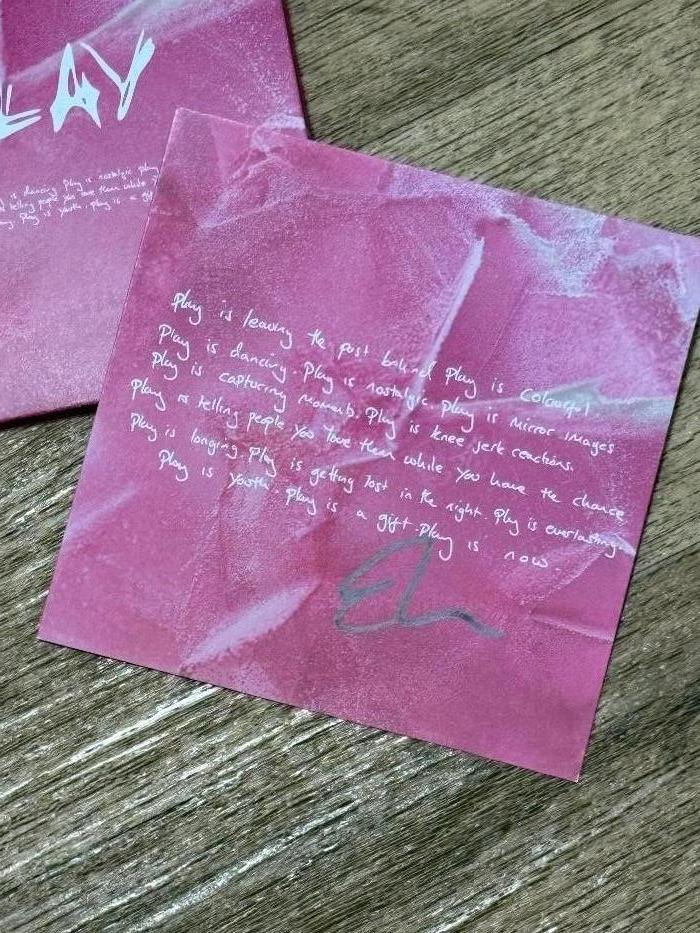 LAY
is dancing. Play is nostalgic Play
telling people you love them while
Play is youth. Play is a gif
Play is leaving the past behind Play is colourful
Play is dancing. Play is nostalgic Play is mirror images
Play is capturing moments. Play is knee jerk reactions.
Play is telling people you love them while you have the chance
Play is longing. Play is getting lost in the night. Play is everlasting
Play is youth. Play is a gift. Play is now.